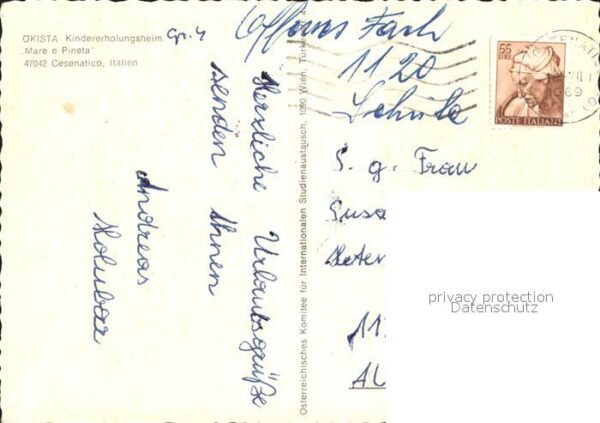 ÖKISTA Kindererholungsheim
„Mare e Pineta"
47042 Cesenatico, Italien
Gr. 4
Herzliche Urlaubsgrüße
senden Ihnen
Andreas
Holubar
Österreichisches Komitee für Internationalen Studienaustausch, 1090 Wien, Türken
Offenes Fach
1120
Schule
S. g. Frau
Susa
11
55
LIRE
POSTE ITALIANE
privacy protection
Datenschutz